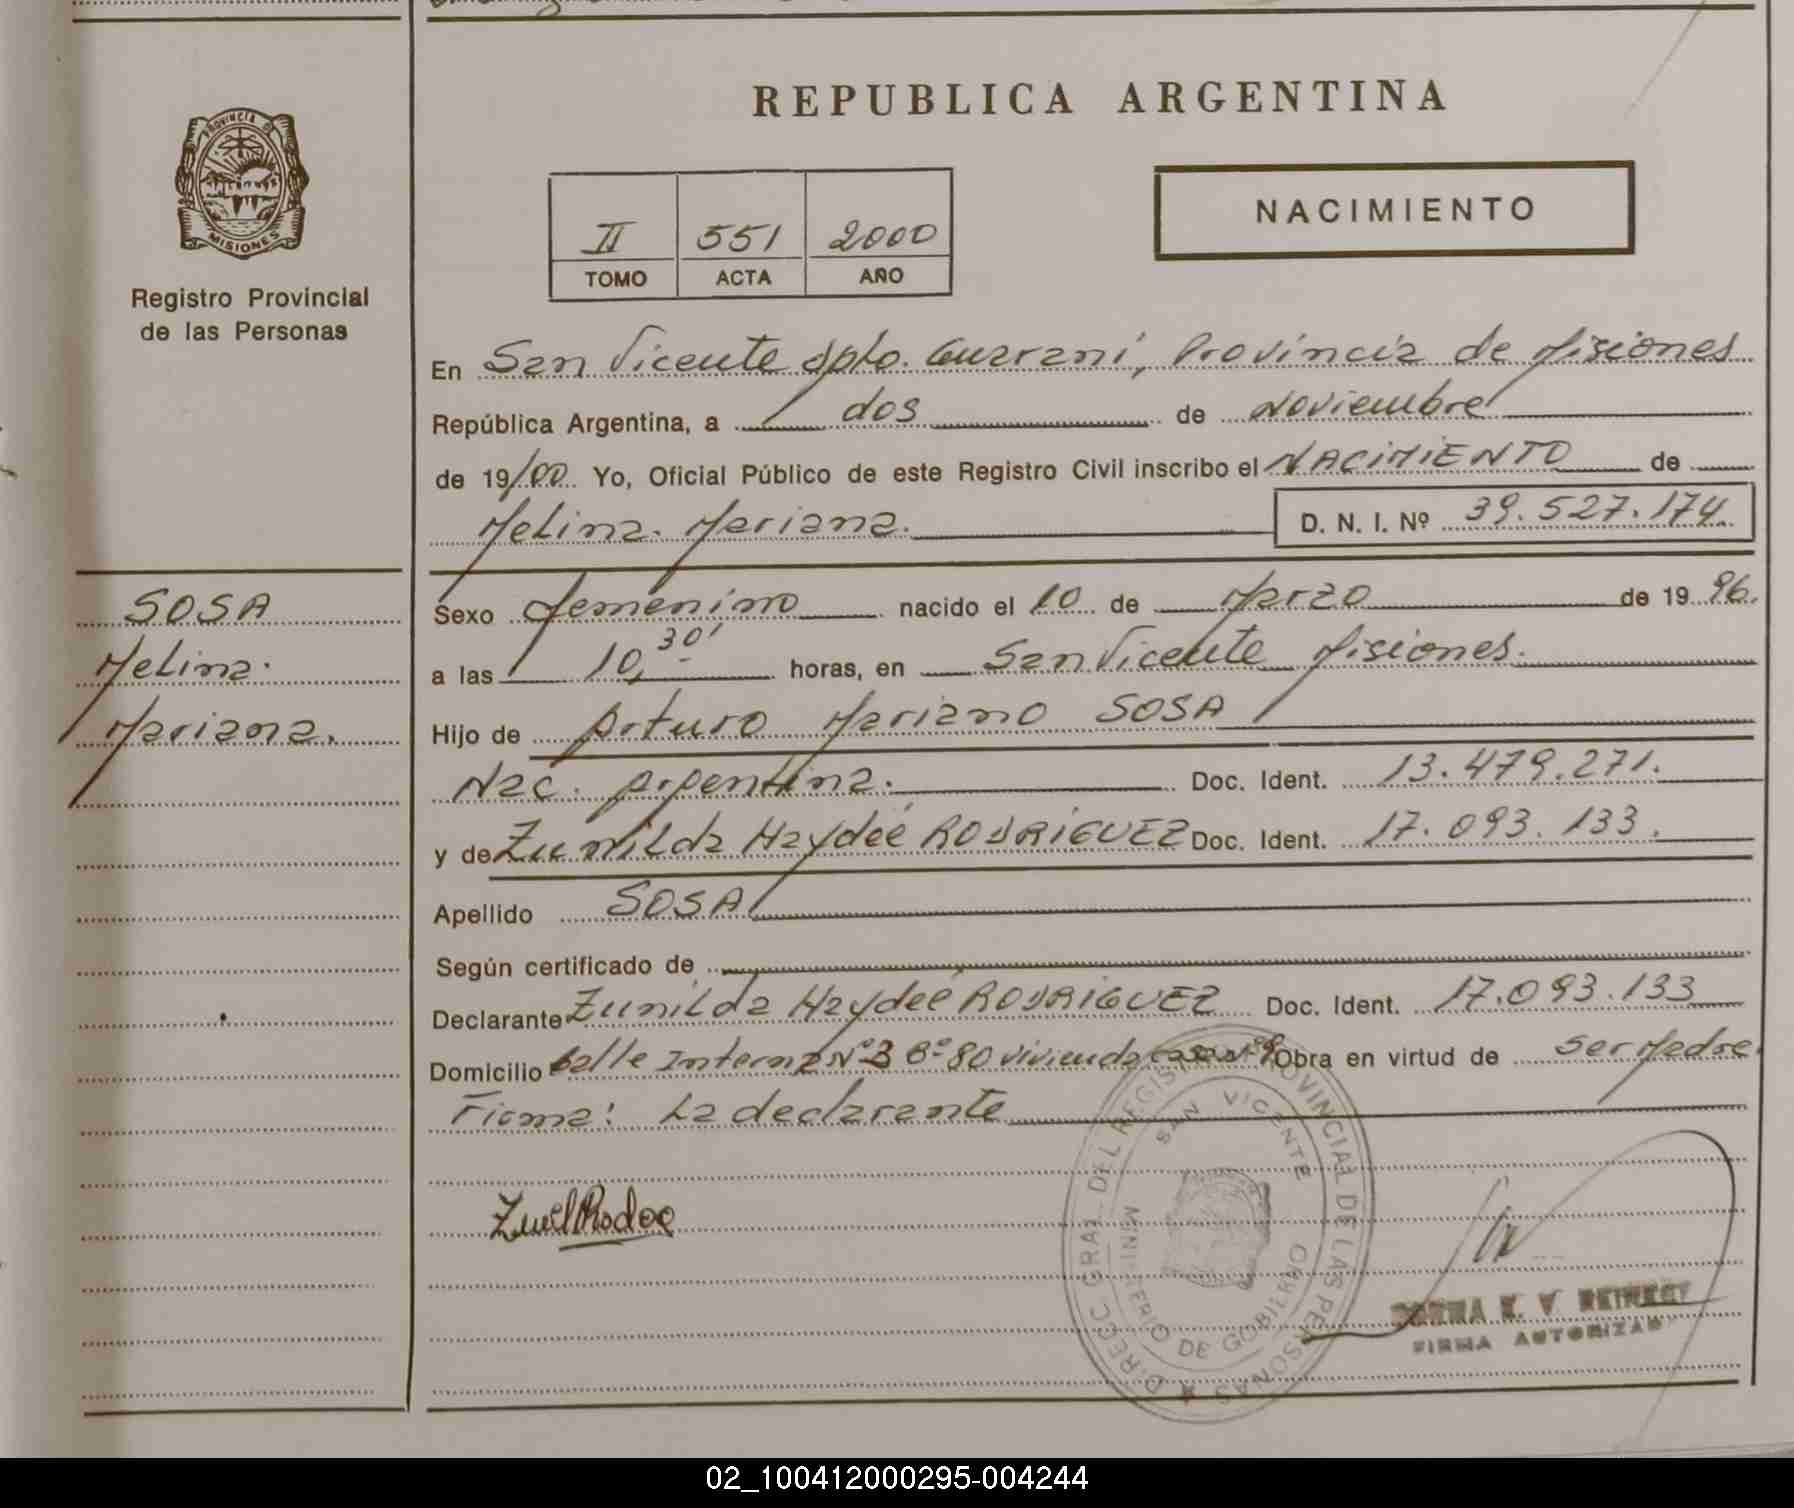 REPUBLICA ARGENTINA
PROVINCIA DE
MISIONES
Registro Provincial
de las Personas
II 551 2000
TOMO ACTA AÑO
NACIMIENTO
En San Vicente dpto. Guarani, Provincia de Misiones
República Argentina, a dos de Noviembre
de 19/00 Yo, Oficial Público de este Registro Civil inscribo el NACIMIENTO de
Melina Mariana. D. N. I. Nº 39.527.174
SOSA
Melina
Mariana.
Sexo femenino nacido el 10 de Marzo de 19 96.
a las 10,30' horas, en San Vicente Misiones.
Hijo de Arturo Mariano SOSA
Nac. Argentina. Doc. Ident. 13.479.271.
y de Zunilda Haydeé RODRIGUEZ Doc. Ident. 17.093.133.
Apellido SOSA
Según certificado de
Declarante Zunilda Haydeé RODRIGUEZ Doc. Ident. 17.093.133
Domicilio Calle Interna Nº 3 Bº 80 vivienda casa Nº 9 Obra en virtud de ser Madre
Firma: La declarante
DIRECC. GRAL. DEL REGISTRO PROVINCIAL DE LAS PERSONAS
SAN VICENTE
MINISTERIO DE GOBIERNO
FIRMA AUTORIZAD
02_100412000295-004244